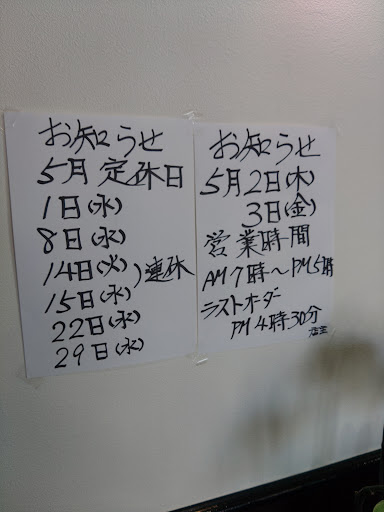 お知らせ
5月定休日
1日(水)
8日(水)
14日(火)
15日(水)
)連休
22日(水)
29日(水)
お知らせ
5月2日(木)
3日(金)
営業時間
AM7時～PM5時
ラストオーダー
PM4時30分
店主